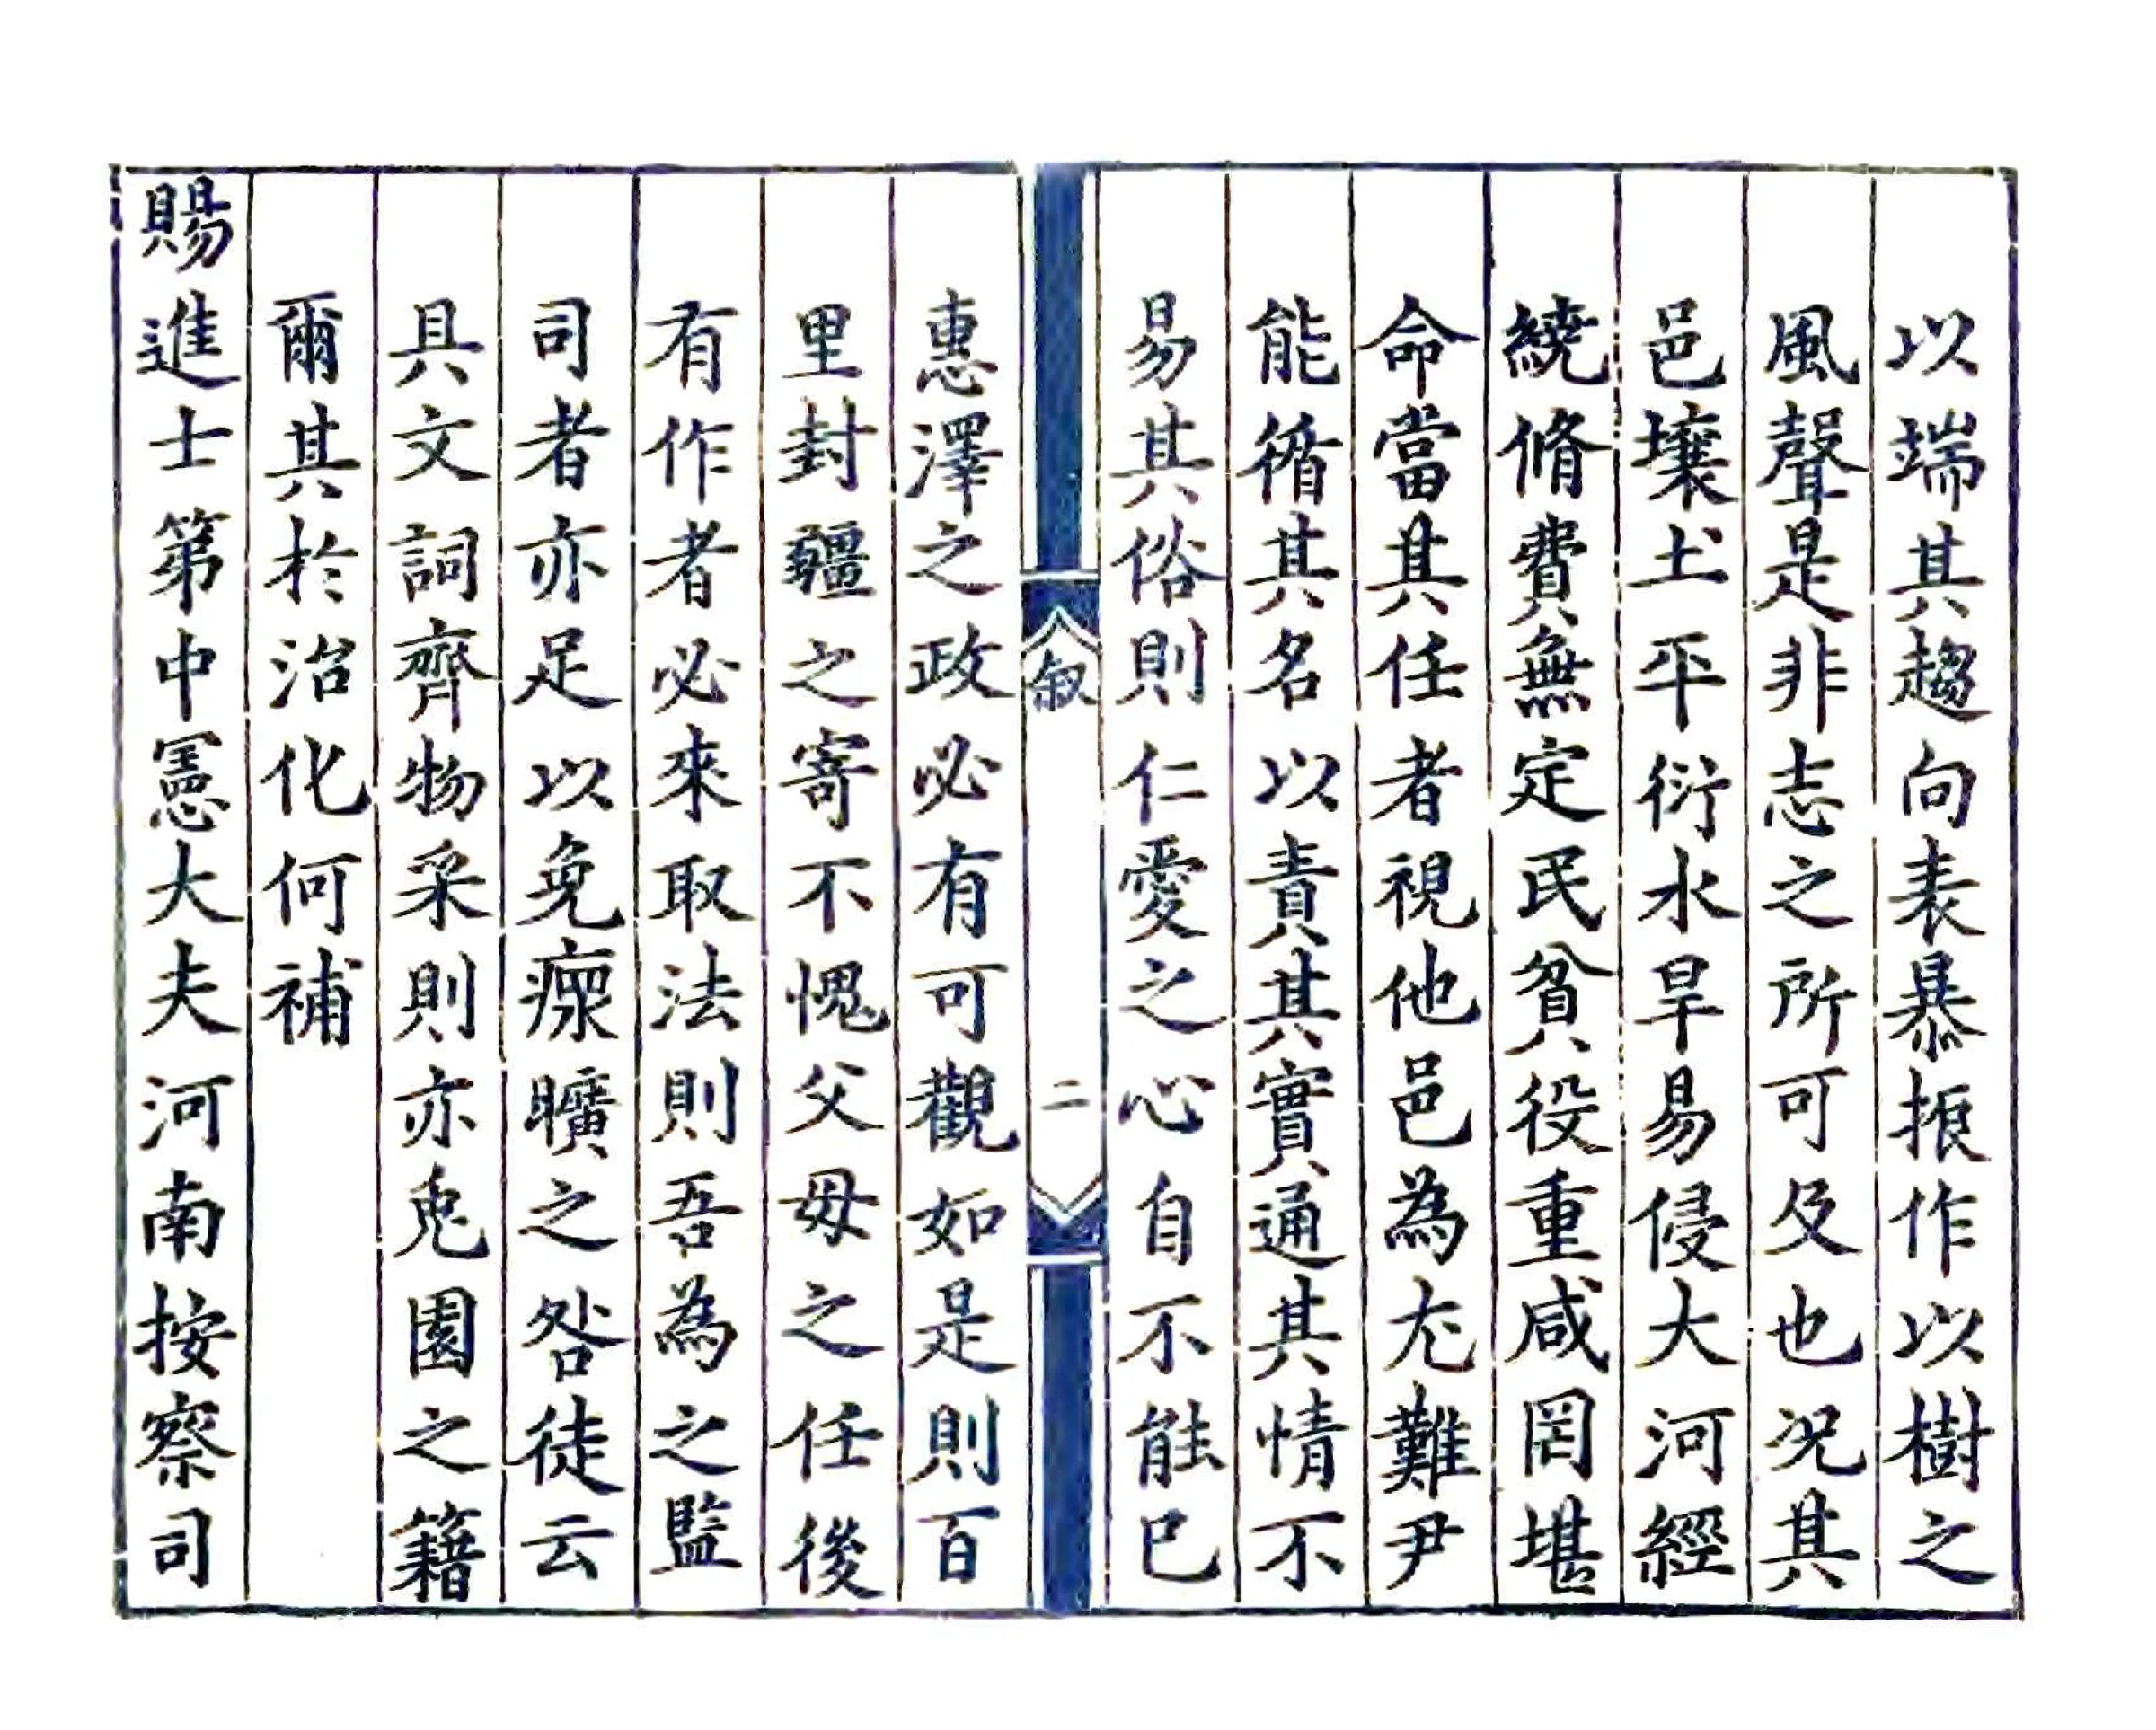 以端其趨向表暴振作以樹之
風聲是非志之所可及也况其
邑壤土平衍水旱易侵大河經
繞脩費無定民貧役重咸罔堪
命當其任者視他邑為尤難尹
能循其名以責其實通其情不
易其俗則仁愛之心自不能已
叙
二
惠澤之政必有可觀如是則百
里封疆之寄不愧父母之任後
有作者必來取法則吾為之監
司者亦足以免瘝曠之咎徒云
具文詞齊物采則亦兎園之籍
爾其於治化何補
賜進士第中憲大夫河南按察司